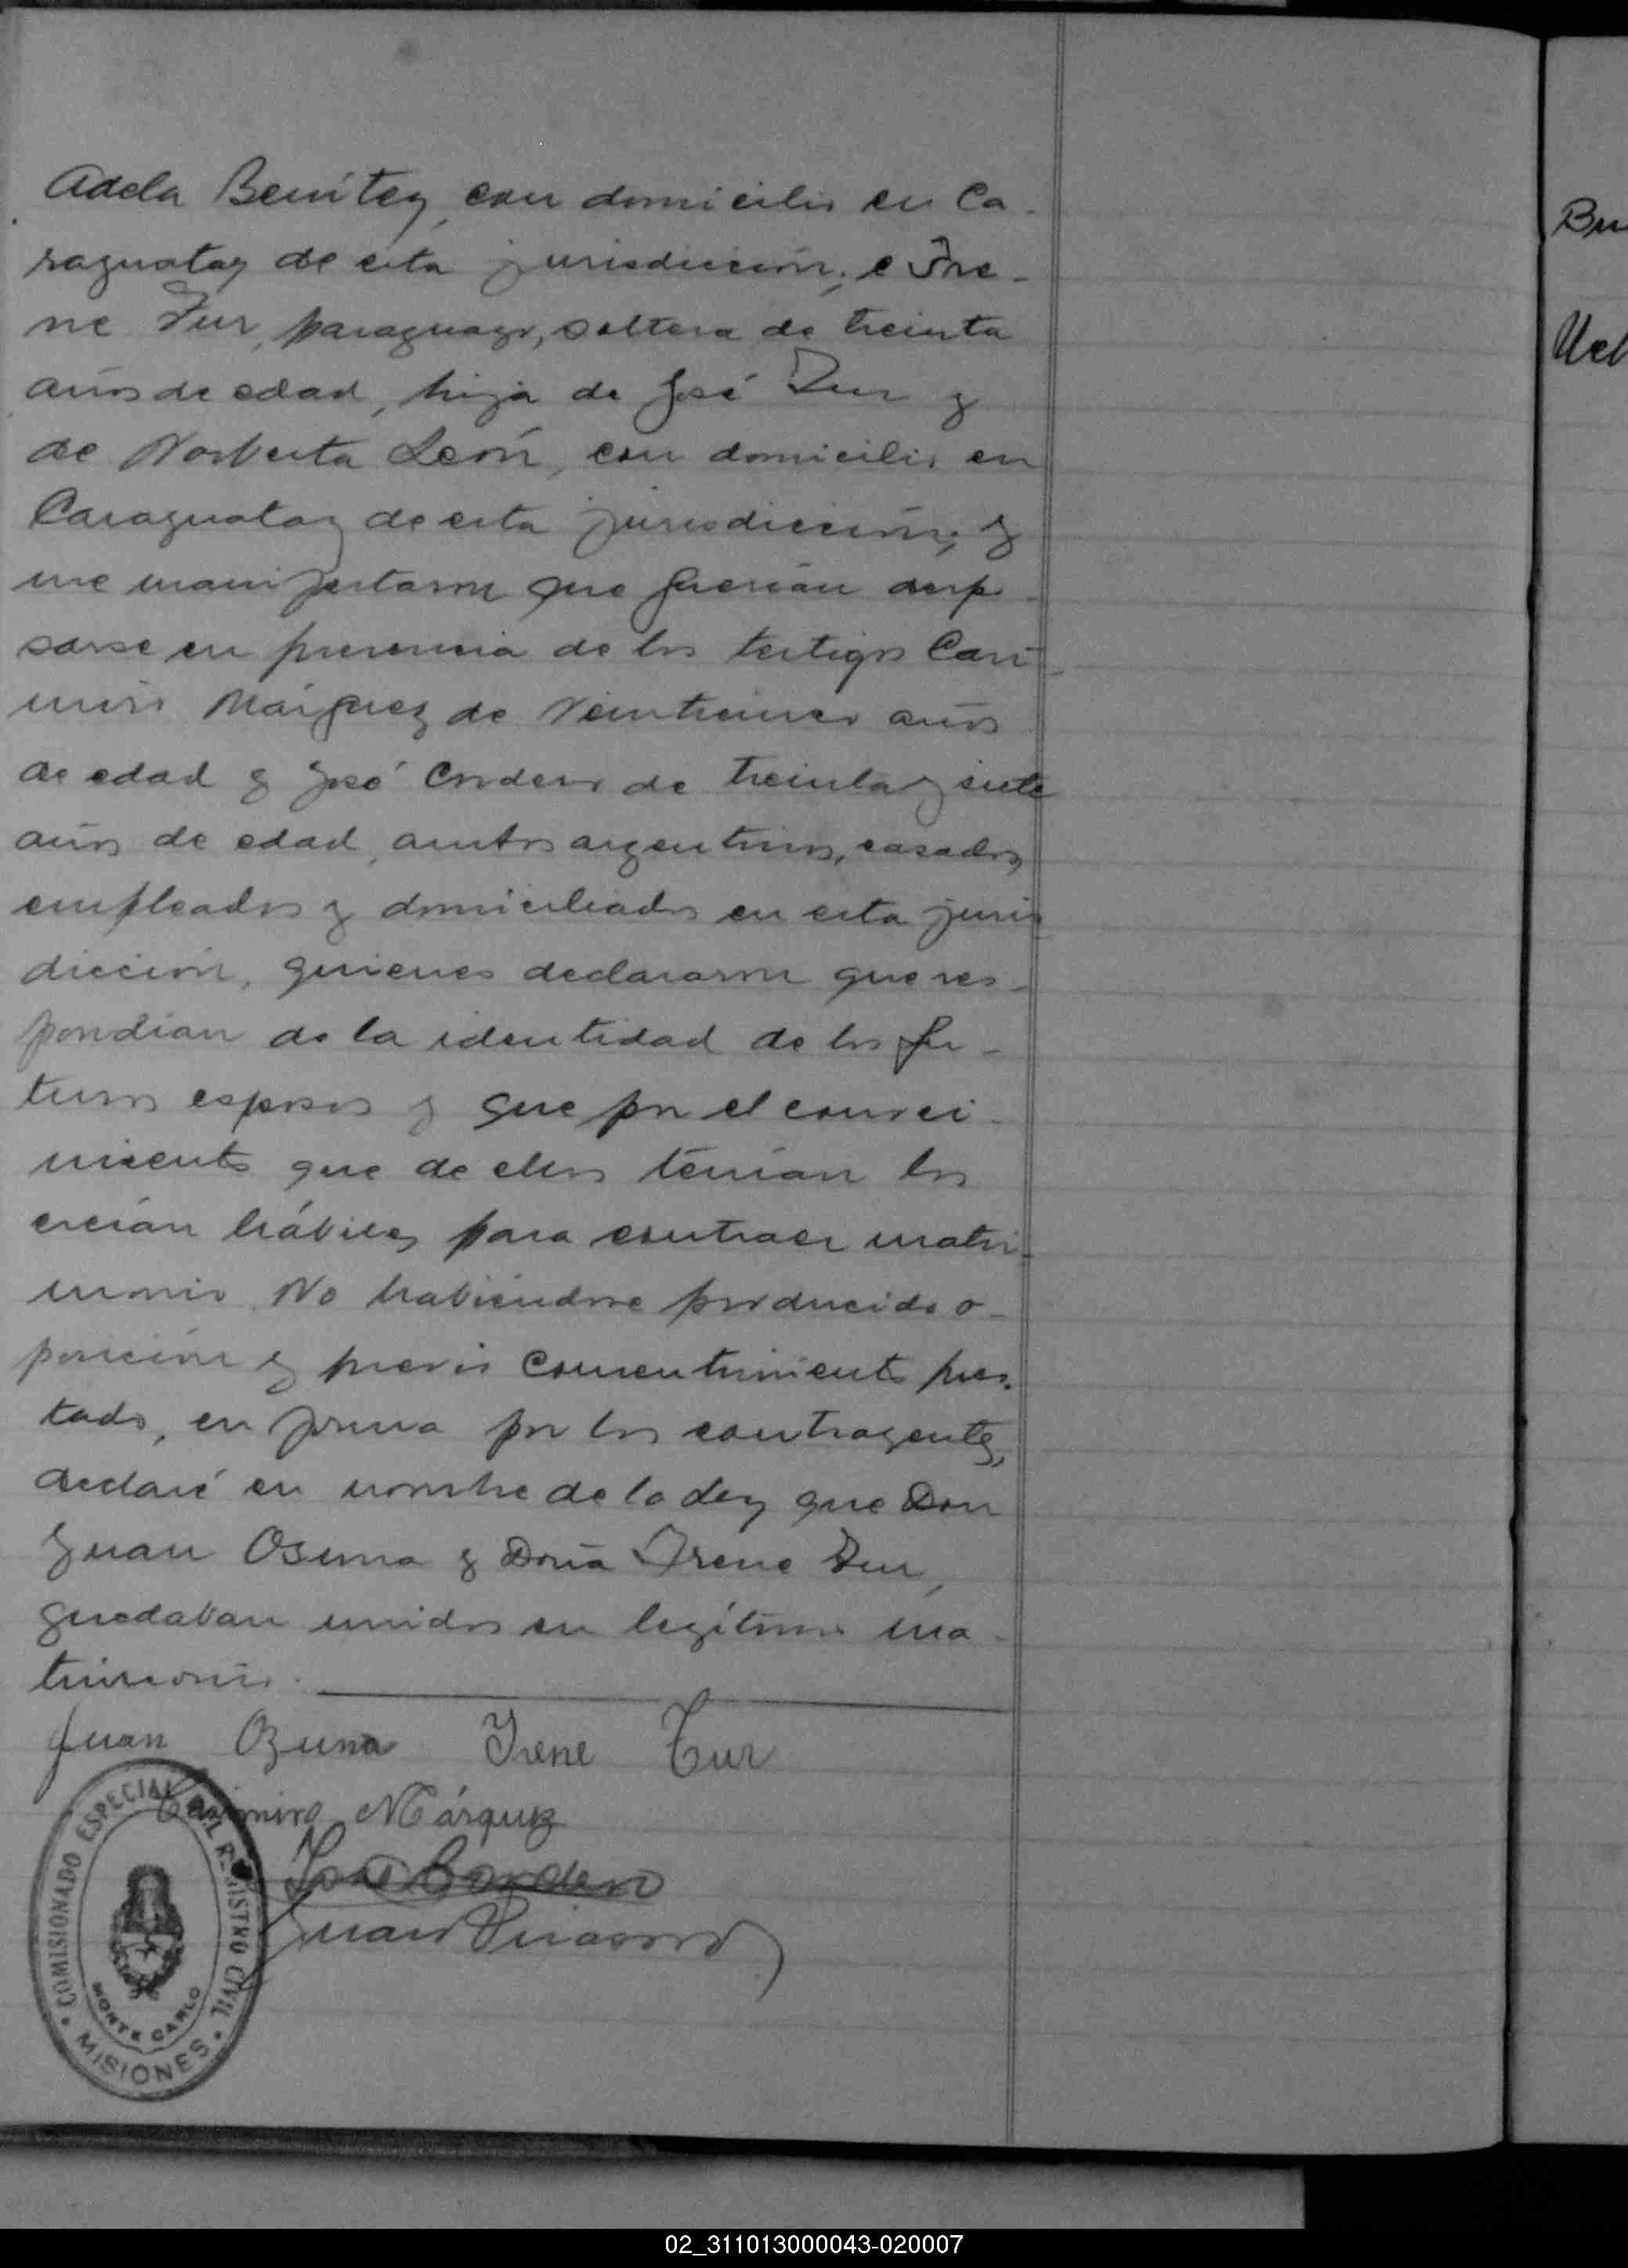 Adela Benítez, con domicilio en Ca-
raguatay de esta jurisdicción; e Ire-
ne Tur, paraguaya, soltera de treinta
años de edad, hija de José Tur y
de Norberta León, con domicilio en
Caraguatay de esta jurisdicción; y
me manifestaron que querían despo-
sarse en presencia de los testigos Casi-
miro Márquez de veinticinco años
de edad y José Cordero de treinta y siete
años de edad, ambos argentinos, casados,
empleados y domiciliados en esta juris
dicción, quienes declararon que res-
pondían de la identidad de los fu-
turos esposos y que por el conoci-
miento que de ellos tenían los
creían hábiles para contraer matri-
monio. No habiéndose producido o-
posición y previo consentimiento pres-
tado, en forma por los contrayentes,
declaré en nombre de la Ley que Don
Juan Osuna y Doña Irene Tur,
quedaban unidos en legítimo ma-
trimonio.
Juan Ozuna Irene Tur
Casimiro Márquez
José Cordero
Juan
COMISIONADO ESPECIAL DEL REGISTRO CIVIL
MONTE CARLO
MISIONES
Bu
02_311013000043-020007